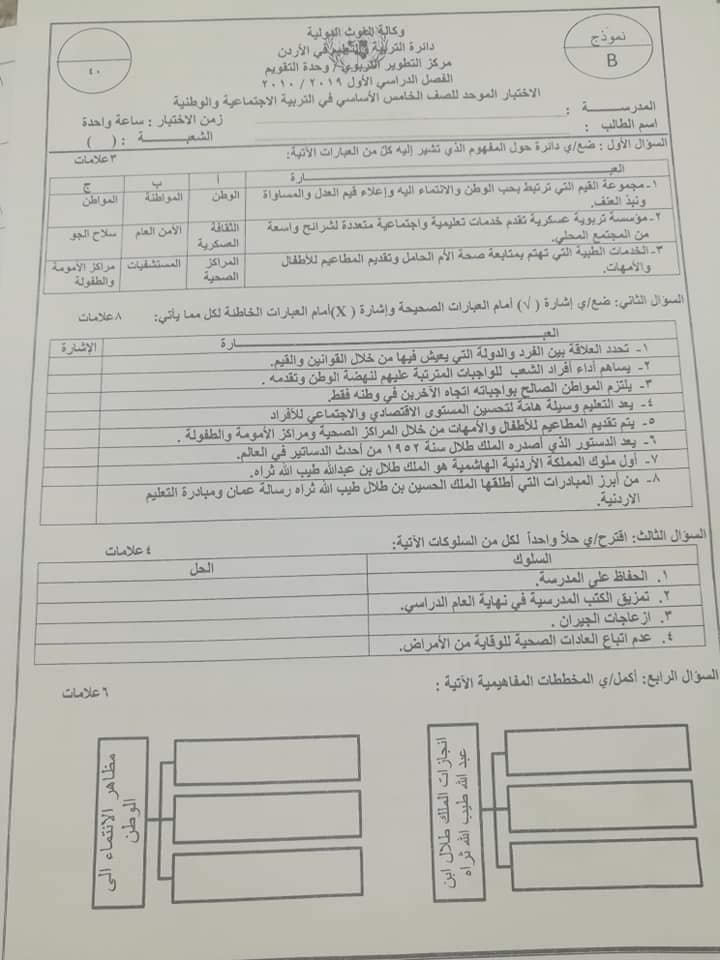 وكالة الغوث الدولية
دائرة التربية والتعليم في الأردن
مركز التطوير التربوي / وحدة التقويم
الفصل الدراسي الأول ٢٠١٩ / ٢٠١٠
الاختبار الموحد للصف الخامس الأساسي في التربية الاجتماعية والوطنية
نموذج
B
٤٠
المدرســـــة :
زمن الاختبار : ساعة واحدة
اسم الطالب :
الشعبـــــة : ( )
السؤال الأول : ضع/ي دائرة حول المفهوم الذي تشير إليه كلّ من العبارات الآتية: ٣ علامات
العبـــــــــارة أ ب ج
١- مجموعة القيم التي ترتبط بحب الوطن والانتماء اليه وإعلاء قيم العدل والمساواة ونبذ العنف. الوطن المواطنة المواطن
٢- مؤسسة تربوية عسكرية تقدم خدمات تعليمية واجتماعية متعددة لشرائح واسعة من المجتمع المحلي. الثقافة العسكرية الأمن العام سلاح الجو
٣- الخدمات الطبية التي تهتم بمتابعة صحة الأم الحامل وتقديم المطاعيم للأطفال والأمهات. المراكز الصحية المستشفيات مراكز الأمومة والطفولة
السؤال الثاني: ضع/ي إشارة ( √ ) أمام العبارات الصحيحة وإشارة ( X )أمام العبارات الخاطئة لكل مما يأتي: ٨ علامات
العبـــــــــارة الإشارة
١- تحدد العلاقة بين الفرد والدولة التي يعيش فيها من خلال القوانين والقيم.
٢- يساهم أداء أفراد الشعب للواجبات المترتبة عليهم لنهضة الوطن وتقدمه .
٣- يلتزم المواطن الصالح بواجباته اتجاه الآخرين في وطنه فقط.
٤- يعد التعليم وسيلة هامّة لتحسين المستوى الاقتصادي والاجتماعي للأفراد
٥- يتم تقديم المطاعيم للأطفال والأمهات من خلال المراكز الصحية ومراكز الأمومة والطفولة .
٦- يعد الدستور الذي أصدره الملك طلال سنة ١٩٥٢ من أحدث الدساتير في العالم.
٧- أول ملوك المملكة الأردنية الهاشمية هو الملك طلال بن عبدالله طيب الله ثراه.
٨- من أبرز المبادرات التي أطلقها الملك الحسين بن طلال طيب الله ثراه رسالة عمان ومبادرة التعليم
الاردنية.
السؤال الثالث: اقترح/ي حلاً واحداً لكل من السلوكات الآتية: ٤ علامات
السلوك الحل
١. الحفاظ على المدرسة.
٢. تمزيق الكتب المدرسية في نهاية العام الدراسي.
٣. ازعاجات الجيران .
٤. عدم اتباع العادات الصحية للوقاية من الأمراض.
السؤال الرابع: أكمل/ي المخططات المفاهيمية الآتية : ٦ علامات
انجازات الملك طلال ابن
عبد الله طيب الله ثراه
مظاهر الانتماء الى
الوطن